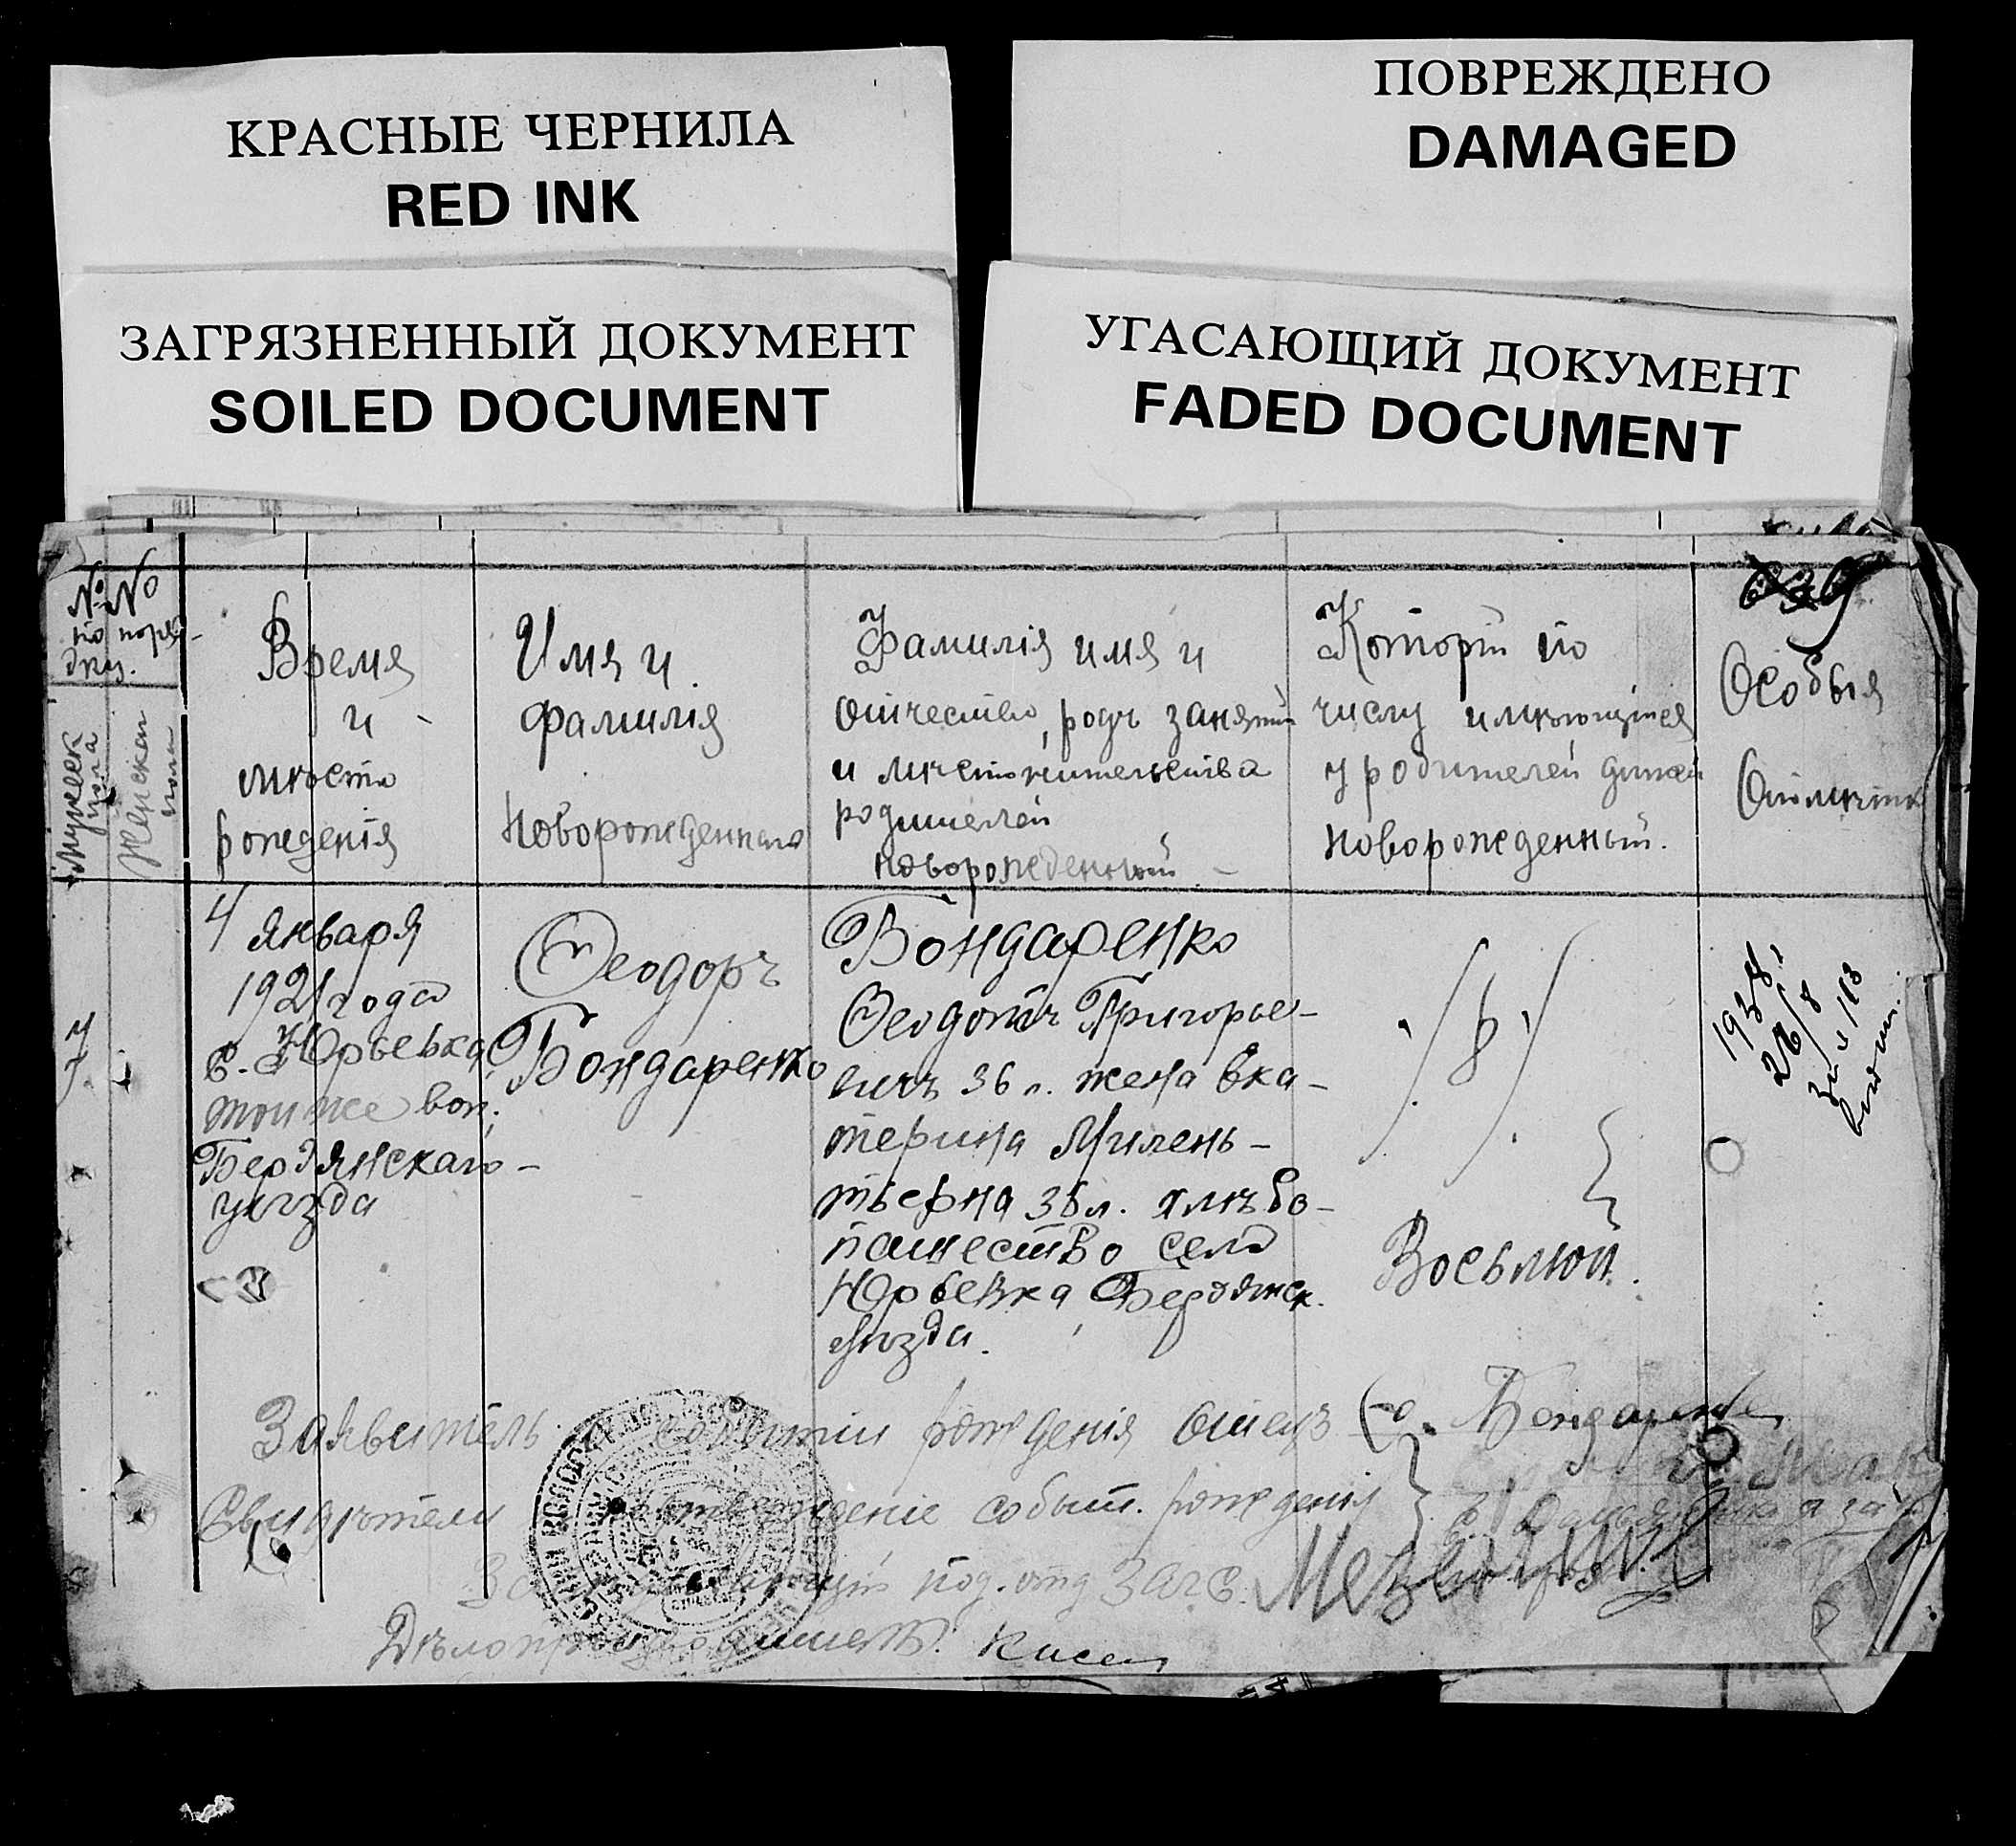 КРАСНЫЕ ЧЕРНИЛА
RED INK
ПОВРЕЖДЕНО
DAMAGED
ЗАГРЯЗНЕННЫЙ ДОКУМЕНТ
SOILED DOCUMENT
УГАСАЮЩИЙ ДОКУМЕНТ
FADED DOCUMENT
№ №
по поря-
дку.
Мужеск
пола
Женскаго
пола
Время
и -
мѣсто
рожденія
Имя и
фамилія
новорожденнаго
Фамилія имя и
отчество, родъ занятій
и мѣстожительства
родителей
новорожденный. -
Которій по
числу имѣющійся
у родителей дѣтей
новорожденный.
Особыя
Отмѣтки
4 января
1921 года
с. Юрьевка
тоиже вол.
Бердянскаго -
уѣзда
Ѳеодоръ
Бондаренко
Бондаренко
Ѳеодотъ Григорье-
вичъ 36 л. жена Ека-
терина
36 л. хлѣбо-
пашество село
Юрьевка Бердянск.
уѣзда.
/8/
Восьмой.
1938
28/8
Заявитель о событіи рожденія отецъ Ѳ. Бондаренко
Свидѣтели подтвержденіе событ. рожденія
Завѣдывающій под. отд ЗАГС.
Дѣлопроизводитель